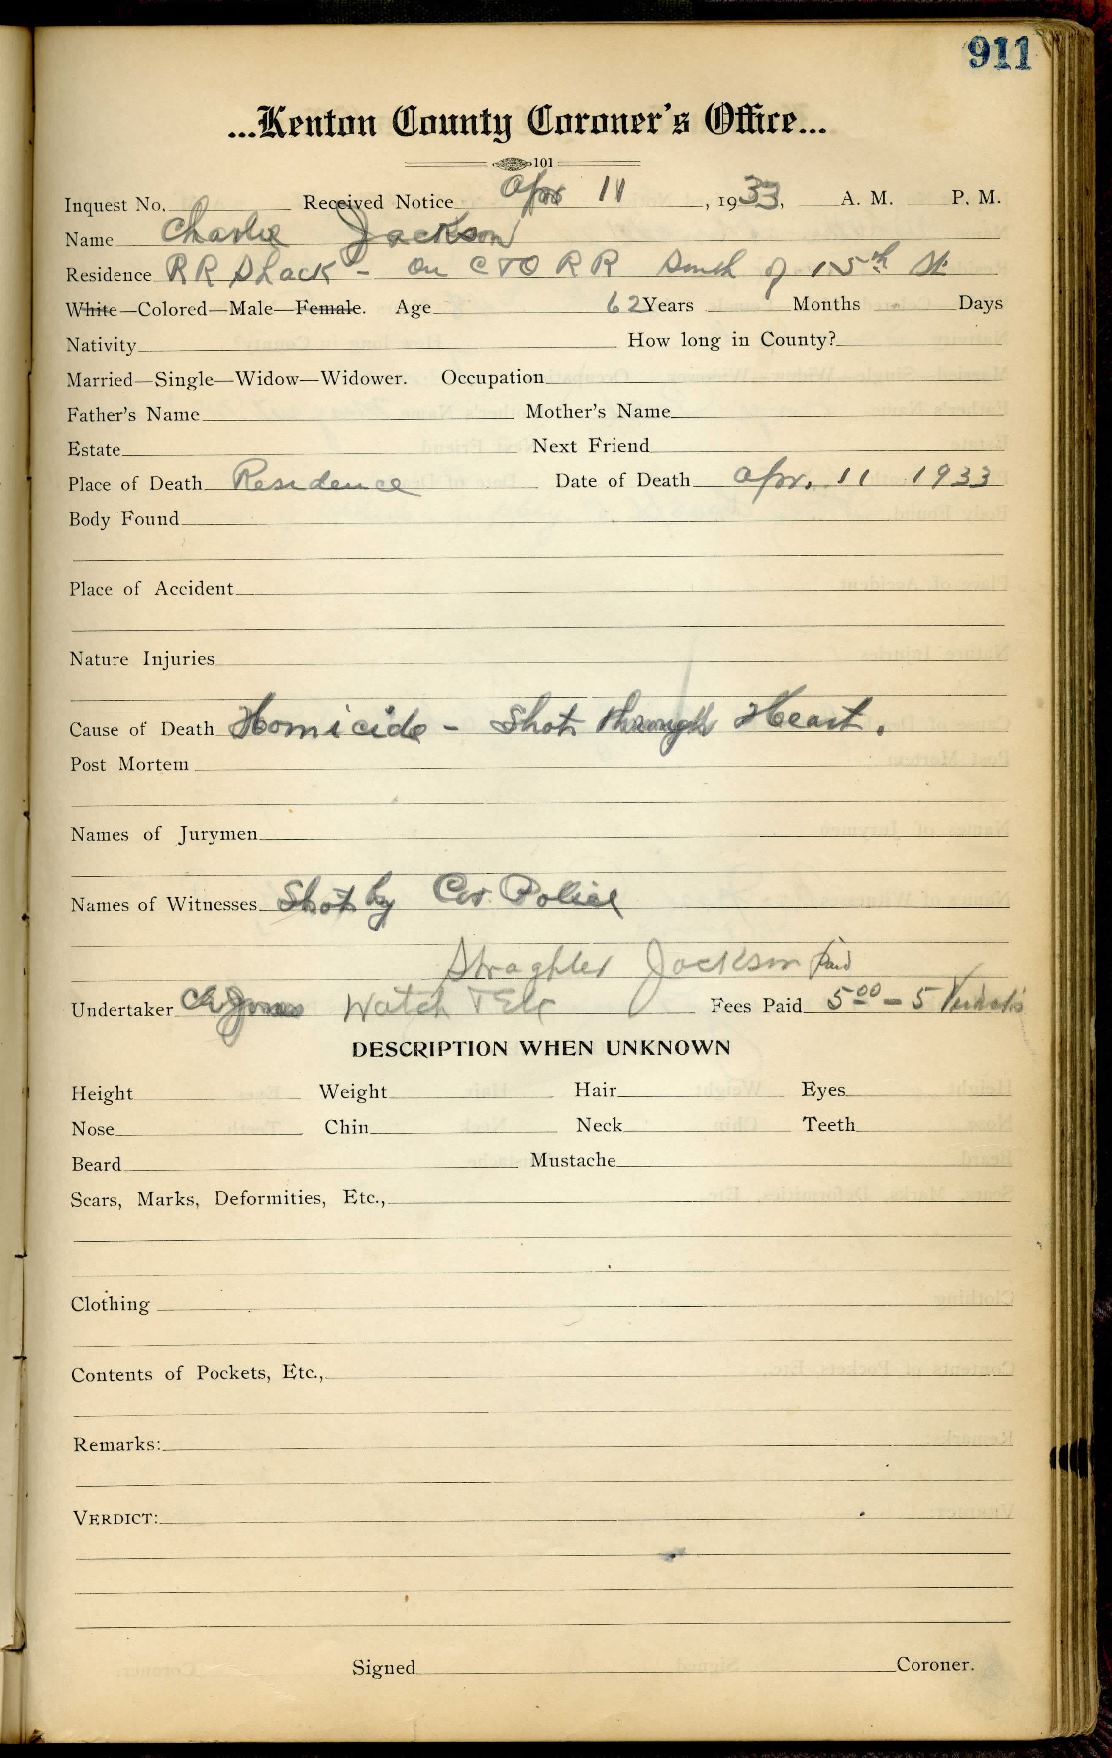 911
...Kenton County Coroner's Office...
101
Inquest No. Received Notice Apr 11, 1933, A. M. P. M.
Name Charlie Jackson
Residence RR Shack - on C&O RR South of 15th St.
White—Colored—Male—Female. Age 62 Years Months Days
Nativity How long in County?
Married—Single—Widow—Widower. Occupation
Father's Name Mother's Name
Estate Next Friend
Place of Death Residence Date of Death Apr. 11 1933
Body Found
Place of Accident
Nature Injuries
Cause of Death Homicide - Shot through Heart.
Post Mortem
Names of Jurymen
Names of Witnesses Shot by Cov Police
Jackson Paid
Undertaker Jones Watch Fees Paid 5 00 - 5
DESCRIPTION WHEN UNKNOWN
Height Weight Hair Eyes
Nose Chin Neck Teeth
Beard Mustache
Scars, Marks, Deformities, Etc.,
Clothing
Contents of Pockets, Etc.,
Remarks:
VERDICT:
Signed Coroner.